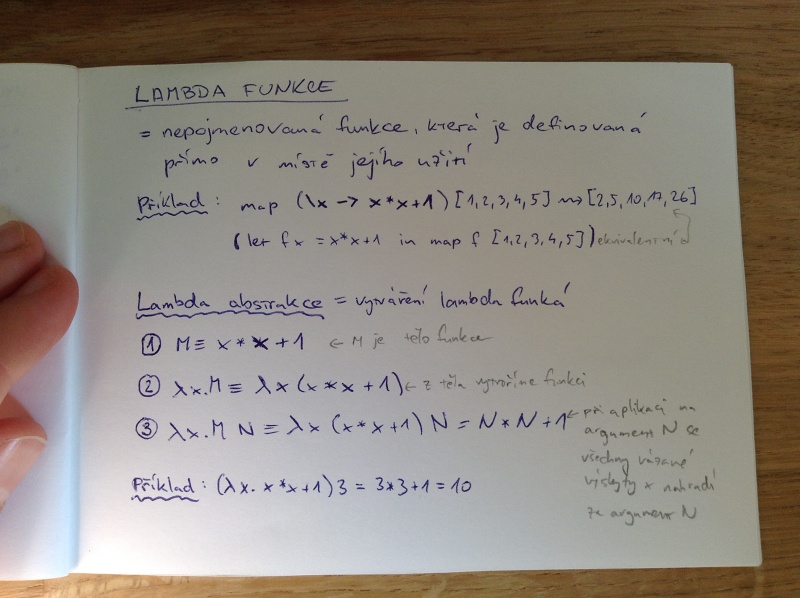 LAMBDA FUNKCE
= nepojmenovaná funkce, která je definovaná
přímo v místě jejího užití
Příklad: map (\x -> x*x+1) [1,2,3,4,5] ⇝ [2,5,10,17,26]
(let f x = x*x+1 in map f [1,2,3,4,5]) ekvivalentní
Lambda abstrakce = vytváření lambda funkcí
① M ≡ x * x + 1 ← M je tělo funkce
② λx.M ≡ λx (x*x + 1) ← z těla vytvoříme funkci
③ λx.M N ≡ λx (x*x+1) N = N * N + 1 ← při aplikaci na
argument N se
všechny vázané
výskyty x nahradí
za argument N
Příklad: (λx. x*x+1) 3 = 3*3+1 = 10